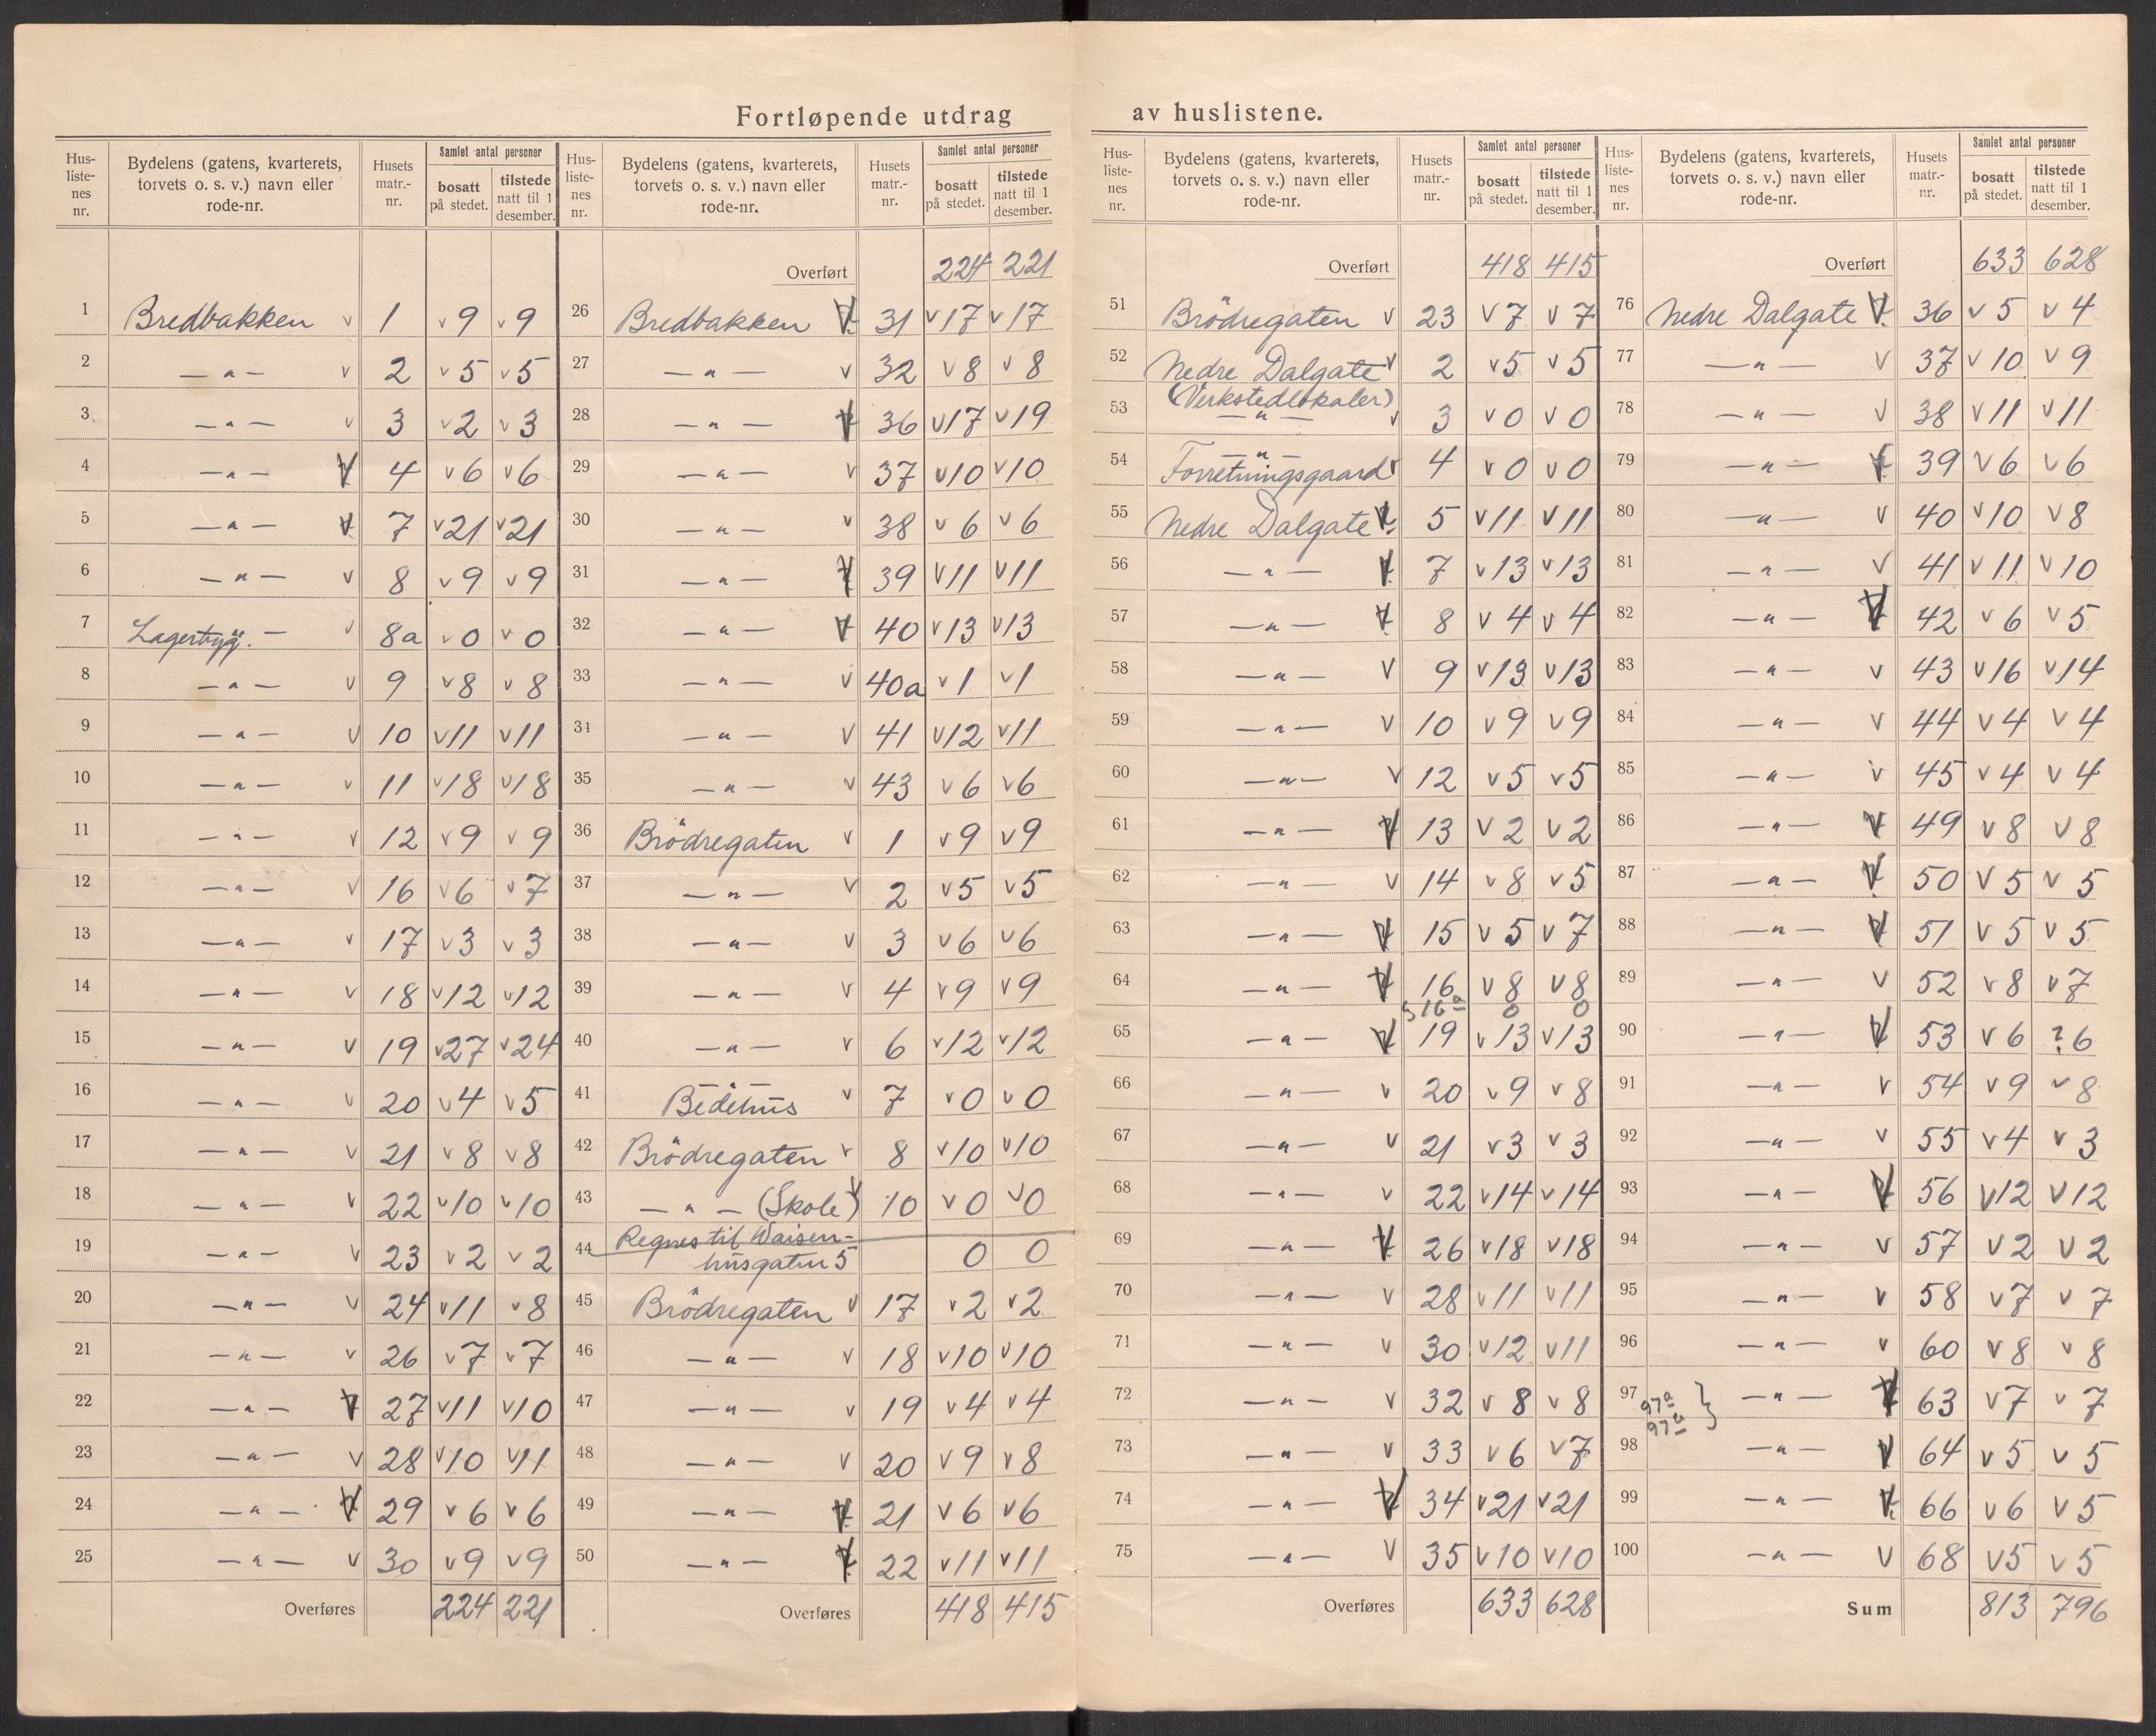 Fortløpende utdrag av huslistene.
Hus-liste-nes nr. | Bydelens (gatens, kvarterets, torvets o. s. v.) navn eller rode-nr. | Husets matr.-nr. | Samlet antal personer | bosatt på stedet. | tilstede natt til 1 desember.
1 Bredbakken v 1 v 9 v 9
2 — " — v 2 v 5 v 5
3 — " — v 3 v 2 v 3
4 — " — V 4 v 6 v 6
5 — " — V 7 v 21 v 21
6 — " — v 8 v 9 v 9
7 Lagerbygg. — v 8a v 0 v 0
8 — " — v 9 v 8 v 8
9 — " — v 10 v 11 v 11
10 — " — v 11 v 18 v 18
11 — " — v 12 v 9 v 9
12 — " — v 16 v 6 v 7
13 — " — v 17 v 3 v 3
14 — " — v 18 v 12 v 12
15 — " — v 19 v 27 v 24
16 — " — v 20 v 4 v 5
17 — " — v 21 v 8 v 8
18 — " — v 22 v 10 v 10
19 — " — v 23 v 2 v 2
20 — " — v 24 v 11 v 8
21 — " — v 26 v 7 v 7
22 — " — V 27 v 11 v 10
23 — " — v 28 v 10 v 11
24 — " — V 29 v 6 v 6
25 — " — v 30 v 9 v 9
Overføres 224 221
Hus-liste-nes nr. | Bydelens (gatens, kvarterets, torvets o. s. v.) navn eller rode-nr. | Husets matr.-nr. | Samlet antal personer | bosatt på stedet. | tilstede natt til 1 desember.
Overført 224 221
26 Bredbakken V 31 v 17 v 17
27 — " — v 32 v 8 v 8
28 — " — V 36 v 17 v 19
29 — " — v 37 v 10 v 10
30 — " — v 38 v 6 v 6
31 — " — V 39 v 11 v 11
32 — " — V 40 v 13 v 13
33 — " — v 40a v 1 v 1
34 — " — v 41 v 12 v 11
35 — " — v 43 v 6 v 6
36 Brödregaten v 1 v 9 v 9
37 — " — v 2 v 5 v 5
38 — " — v 3 v 6 v 6
39 — " — v 4 v 9 v 9
40 — " — v 6 v 12 v 12
41 — " — Bedehus v 7 v 0 v 0
42 Brödregaten v 8 v 10 v 10
43 — " — (Skole) v 10 v 0 v 0
44 Regnes til Waisen-
husgaten 5 0 0
45 Brödregaten v 17 v 2 v 2
46 — " — v 18 v 10 v 10
47 — " — v 19 v 4 v 4
48 — " — v 20 v 9 v 8
49 — " — V 21 v 6 v 6
50 — " — V 22 v 11 v 11
Overføres 418 415
Hus-liste-nes nr. | Bydelens (gatens, kvarterets, torvets o. s. v.) navn eller rode-nr. | Husets matr.-nr. | Samlet antal personer | bosatt på stedet. | tilstede natt til 1 desember.
Overført 418 415
51 Brödregaten v 23 v 7 v 7
52 Nedre Dalgate v 2 v 5 v 5
(Verkstedlokaler)
53 — " — v 3 v 0 v 0
— " —
54 Forretningsgaard v 4 v 0 v 0
55 Nedre Dalgate V 5 v 11 v 11
56 — " — V 7 v 13 v 13
57 — " — V 8 v 4 v 4
58 — " — v 9 v 13 v 13
59 — " — v 10 v 9 v 9
60 — " — v 12 v 5 v 5
61 — " — V 13 v 2 v 2
62 — " — v 14 v 8 v 5
63 — " — V 15 v 5 v 7
64 — " — V 16 v 8 v 8
16a 0 0
65 — " — V 19 v 13 v 13
66 — " — v 20 v 9 v 8
67 — " — v 21 v 3 v 3
68 — " — v 22 v 14 v 14
69 — " — V 26 v 18 v 18
70 — " — v 28 v 11 v 11
71 — " — v 30 v 12 v 11
72 — " — v 32 v 8 v 8
73 — " — v 33 v 6 v 7
74 — " — V 34 v 21 v 21
75 — " — v 35 v 10 v 10
Overføres 633 628
Hus-liste-nes nr. | Bydelens (gatens, kvarterets, torvets o. s. v.) navn eller rode-nr. | Husets matr.-nr. | Samlet antal personer | bosatt på stedet. | tilstede natt til 1 desember.
Overført 633 628
76 Nedre Dalgate V 36 v 5 v 4
77 — " — v 37 v 10 v 9
78 — " — v 38 v 11 v 11
79 — " — V 39 v 6 v 6
80 — " — v 40 v 10 v 8
81 — " — v 41 v 11 v 10
82 — " — V 42 v 6 v 5
83 — " — v 43 v 16 v 14
84 — " — v 44 v 4 v 4
85 — " — v 45 v 4 v 4
86 — " — V 49 v 8 v 8
87 — " — V 50 v 5 v 5
88 — " — V 51 v 5 v 5
89 — " — v 52 v 8 v 7
90 — " — V 53 v 6 ? 6
91 — " — v 54 v 9 v 8
92 — " — v 55 v 4 v 3
93 — " — V 56 v 12 v 12
94 — " — v 57 v 2 v 2
95 — " — v 58 v 7 v 7
96 — " — v 60 v 8 v 8
97 — " — V 63 v 7 v 7
97a
97a
98 — " — V 64 v 5 v 5
99 — " — V 66 v 6 v 5
100 — " — v 68 v 5 v 5
Sum 813 796